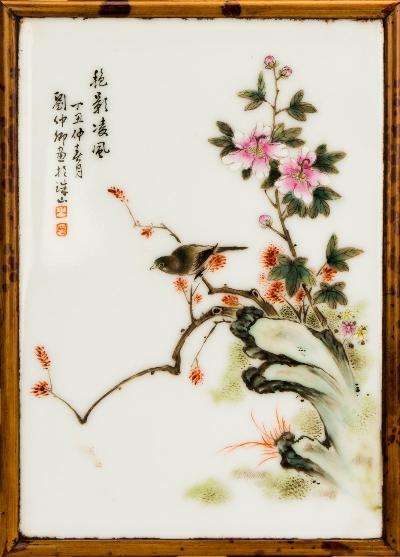 艳影凌風
丁丑仲春月
劉仲卿画於珠山